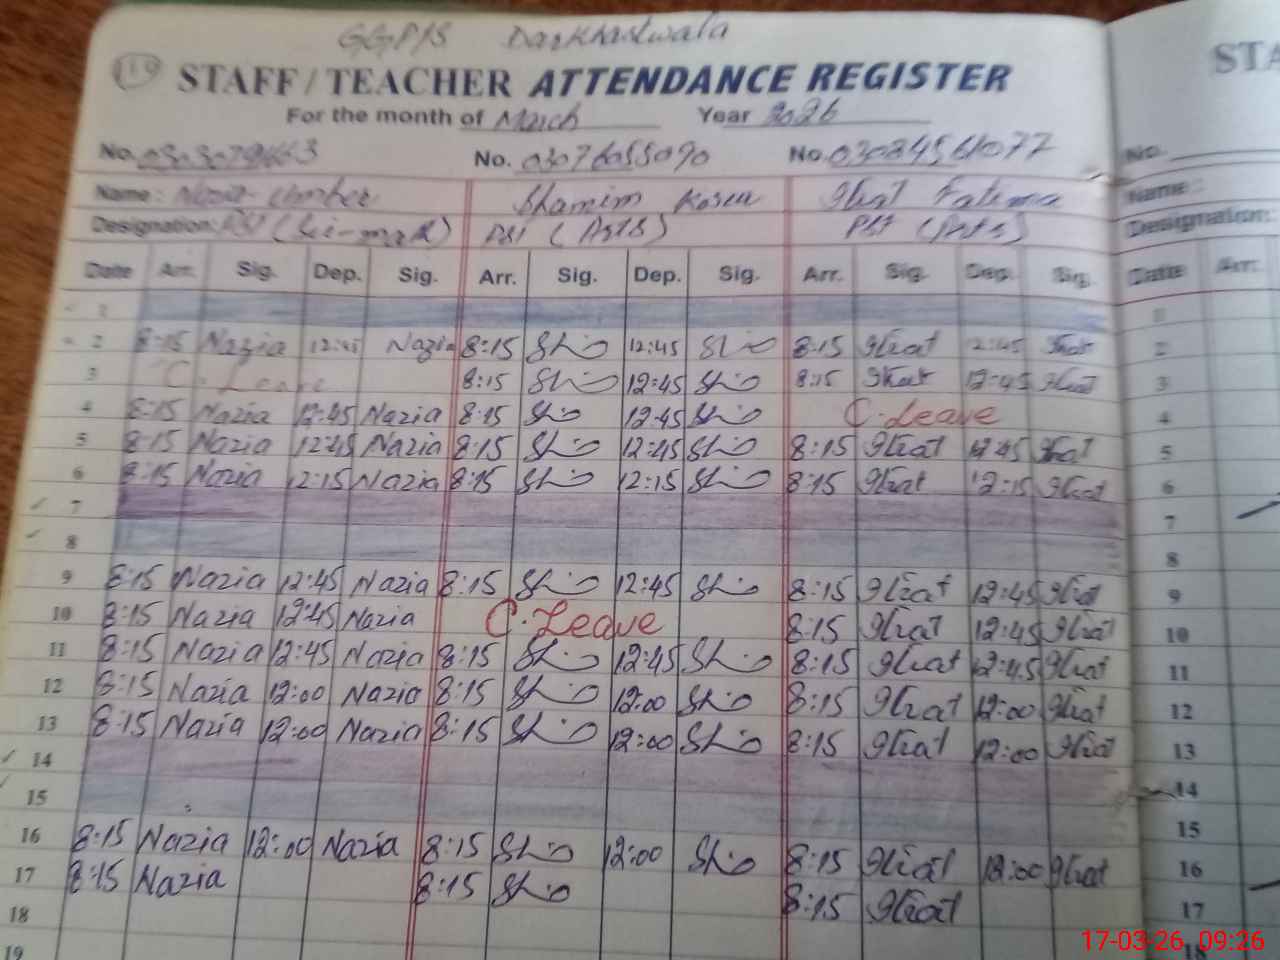 GGP/S Darkhastwala
110
STAFF/TEACHER ATTENDANCE REGISTER
For the month of March Year 2026
No. No. 03076055090 No. 03084561077
Name: Shamim Kosar Ghat Fatima
Designation: (Sci-math) PST (Arts) PST (Arts)
Date Arr. Sig. Dep. Sig. Arr. Sig. Dep. Sig. Arr. Sig. Dep. Sig.
1
2 8:15 Nazia 12:45 Nazia 8:15 12:45 8:15 Ghat 12:45 Ghat
3 C. Leave 8:15 12:45 8:15 Ghat 12:45 Ghat
4 8:15 Nazia 12:45 Nazia 8:15 12:45 C. Leave
5 8:15 Nazia 12:45 Nazia 8:15 12:45 8:15 Ghat 12:45 Ghat
6 8:15 Nazia 12:15 Nazia 8:15 12:15 8:15 Ghat 12:15 Ghat
7
8
9 8:15 Nazia 12:45 Nazia 8:15 12:45 8:15 Ghat 12:45 Ghat
10 8:15 Nazia 12:45 Nazia C. Leave 8:15 Ghat 12:45 Ghat
11 8:15 Nazia 12:45 Nazia 8:15 12:45 8:15 Ghat 12:45 Ghat
12 8:15 Nazia 12:00 Nazia 8:15 12:00 8:15 Ghat 12:00 Ghat
13 8:15 Nazia 12:00 Nazia 8:15 12:00 8:15 Ghat 12:00 Ghat
14
15
16 8:15 Nazia 12:00 Nazia 8:15 12:00 8:15 Ghat 12:00 Ghat
17 8:15 Nazia 8:15 8:15 Ghat
18
19
STA
No.
Name:
Designation:
Date Arr.
1
2
3
4
5
6
7
8
9
10
11
12
13
14
15
16
17
18
17-03-26, 09:26